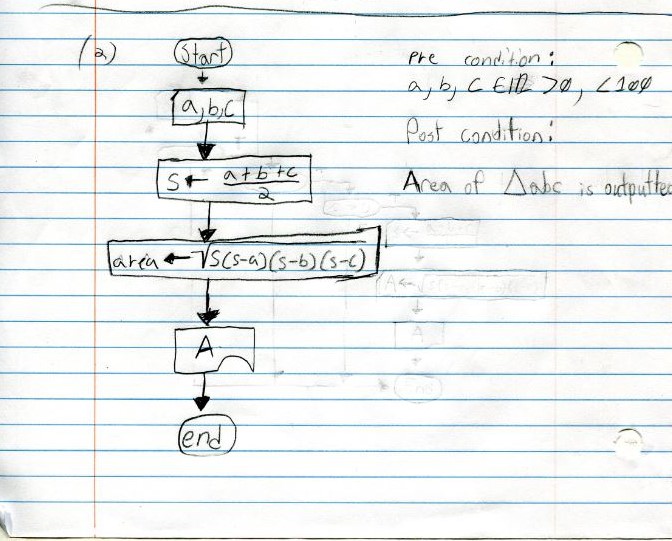 (2)
Start
a,b,c
S ← a+b+c
2
area ← √S(s-a)(s-b)(s-c)
A
end
Pre condition:
a, b, C ∈ ℝ >0, <100
Post condition:
Area of △abc is outputted